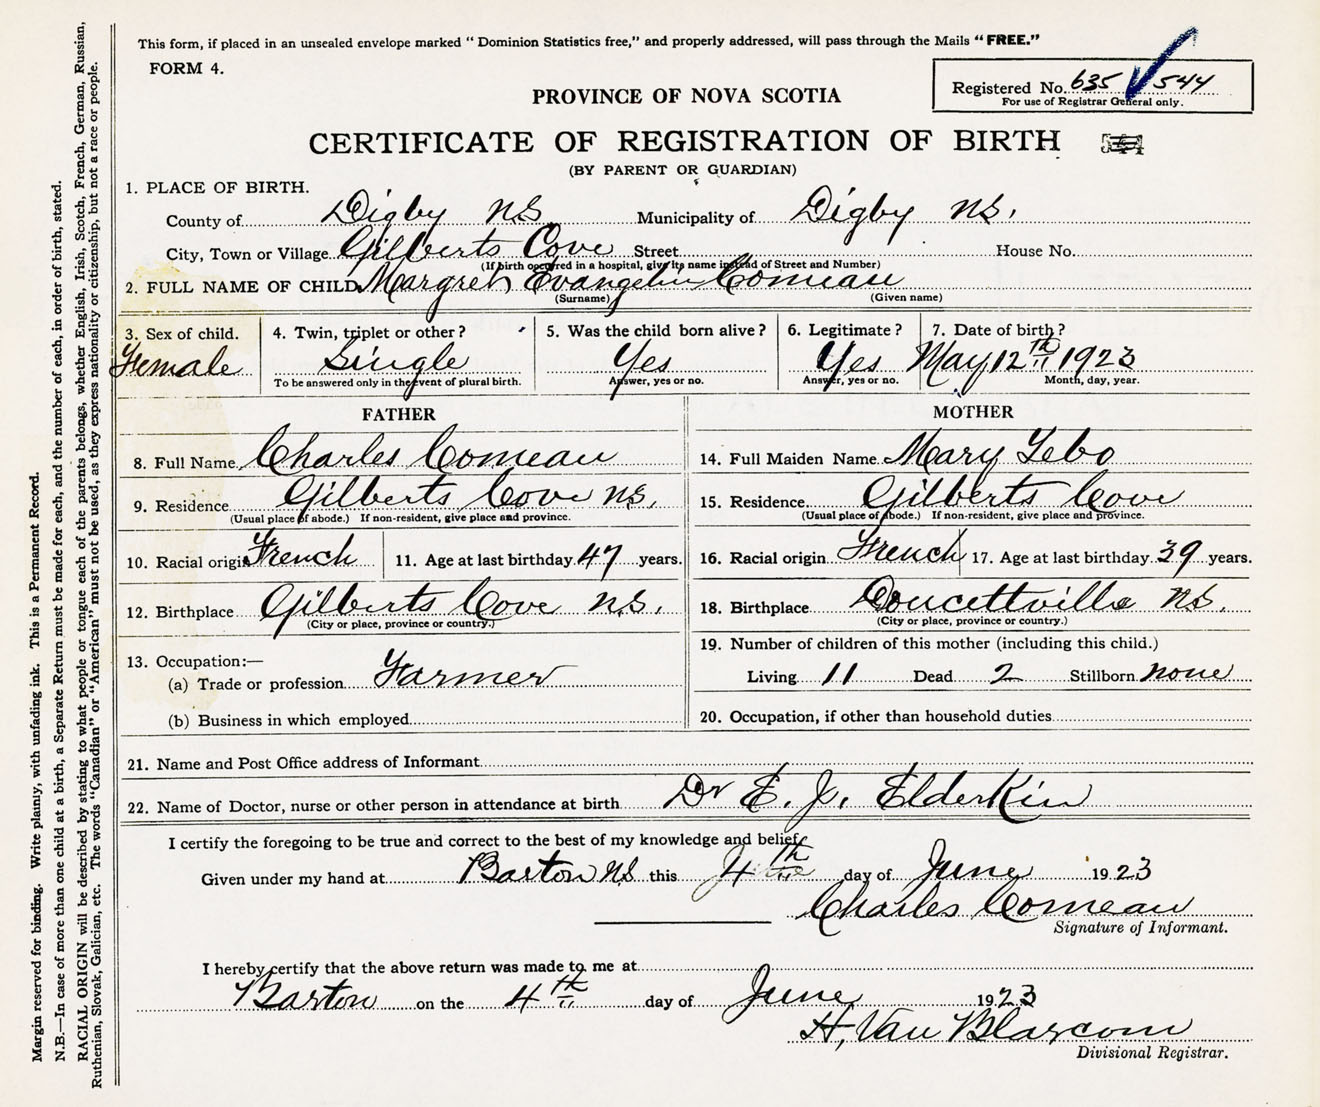 This form, if placed in an unsealed envelope marked “ Dominion Statistics free,” and properly addressed, will pass through the Mails “ FREE.”
FORM 4.
Registered No. 635 544
For use of Registrar General only.
PROVINCE OF NOVA SCOTIA
CERTIFICATE OF REGISTRATION OF BIRTH
(BY PARENT OR GUARDIAN)
1. PLACE OF BIRTH.
County of Digby N.S. Municipality of Digby N.S.
City, Town or Village Gilberts Cove Street House No.
(If birth occurred in a hospital, give its name instead of Street and Number)
2. FULL NAME OF CHILD Margret Evangelin Comeau
(Surname) (Given name)
3. Sex of child. 4. Twin, triplet or other ? 5. Was the child born alive ? 6. Legitimate ? 7. Date of birth ?
Female Single Yes Yes May 12th 1923
To be answered only in the event of plural birth. Answer, yes or no. Answer, yes or no. Month, day, year.
FATHER MOTHER
8. Full Name Charles Comeau 14. Full Maiden Name Mary Lebo
9. Residence Gilberts Cove N.S. 15. Residence Gilberts Cove
(Usual place of abode.) If non-resident, give place and province. (Usual place of abode.) If non-resident, give place and province.
10. Racial origin French 11. Age at last birthday 47 years. 16. Racial origin French 17. Age at last birthday 39 years.
12. Birthplace Gilberts Cove N.S. 18. Birthplace Doucettville N.S.
(City or place, province or country.) (City or place, province or country.)
19. Number of children of this mother (including this child.)
13. Occupation:—
(a) Trade or profession Farmer Living 11 Dead 2 Stillborn none
(b) Business in which employed 20. Occupation, if other than household duties
21. Name and Post Office address of Informant
22. Name of Doctor, nurse or other person in attendance at birth Dr E. J. Elderkin
I certify the foregoing to be true and correct to the best of my knowledge and belief.
Given under my hand at Barton N.S this 4th day of June 1923
Charles Comeau
Signature of Informant.
I hereby certify that the above return was made to me at
Barton on the 4th day of June 1923
H. Van Blarcom
Divisional Registrar.
Margin reserved for binding. Write plainly, with unfading ink. This is a Permanent Record.
N.B.—In case of more than one child at a birth, a Separate Return must be made for each, and the number of each, in order of birth, stated.
RACIAL ORIGIN will be described by stating to what people or tongue each of the parents belongs, whether English, Irish, Scotch, French, German, Russian,
Ruthenian, Slovak, Galician, etc. The words “Canadian” or “American” must not be used, as they express nationality or citizenship, but not a race or people.